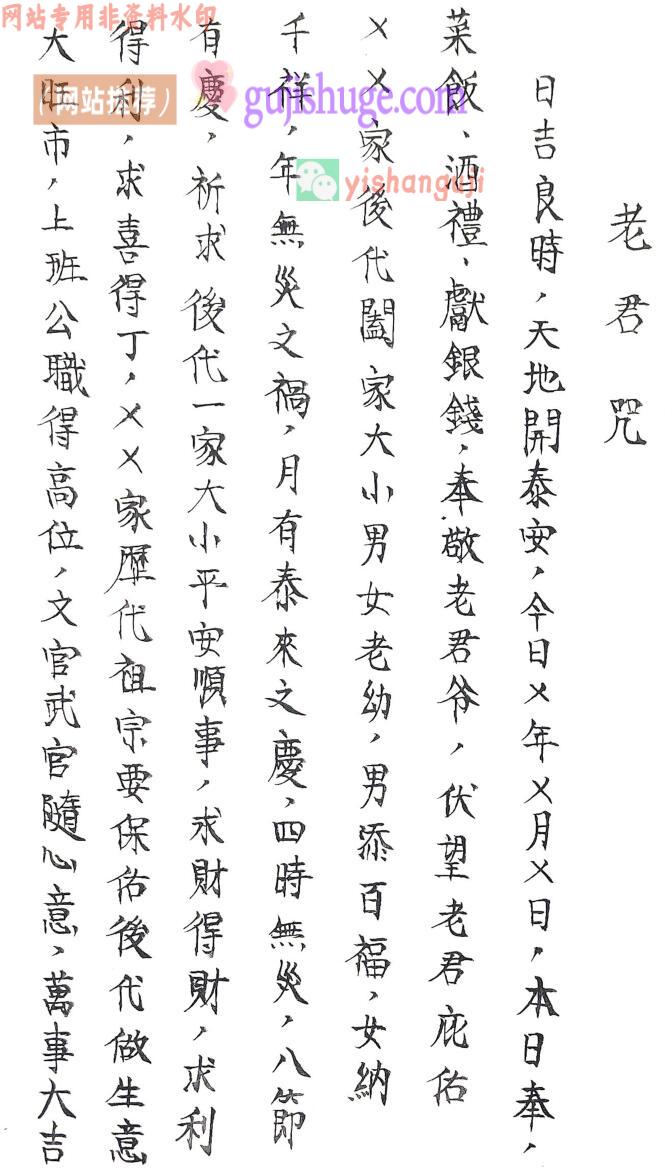 网站专用非资料水印
(网站推荐)
gujishuge.com
yishanguji
老君咒
日吉良時，天地開泰安，今日××年×月×日，本日奉，
菜飯、酒禮、獻銀錢，奉敬老君爷，伏望老君庇佑
××家後代闔家大小男女老幼，男添百福，女納
千祥，年無災之禍，月有泰來之慶，四時無災，八節
有慶，祈求後代一家大小平安順事，求財得財，求利
得利，求喜得丁，××家歷代祖宗要保佑後代做生意
大旺市，上班公職得高位，文官武官隨心意，萬事大吉